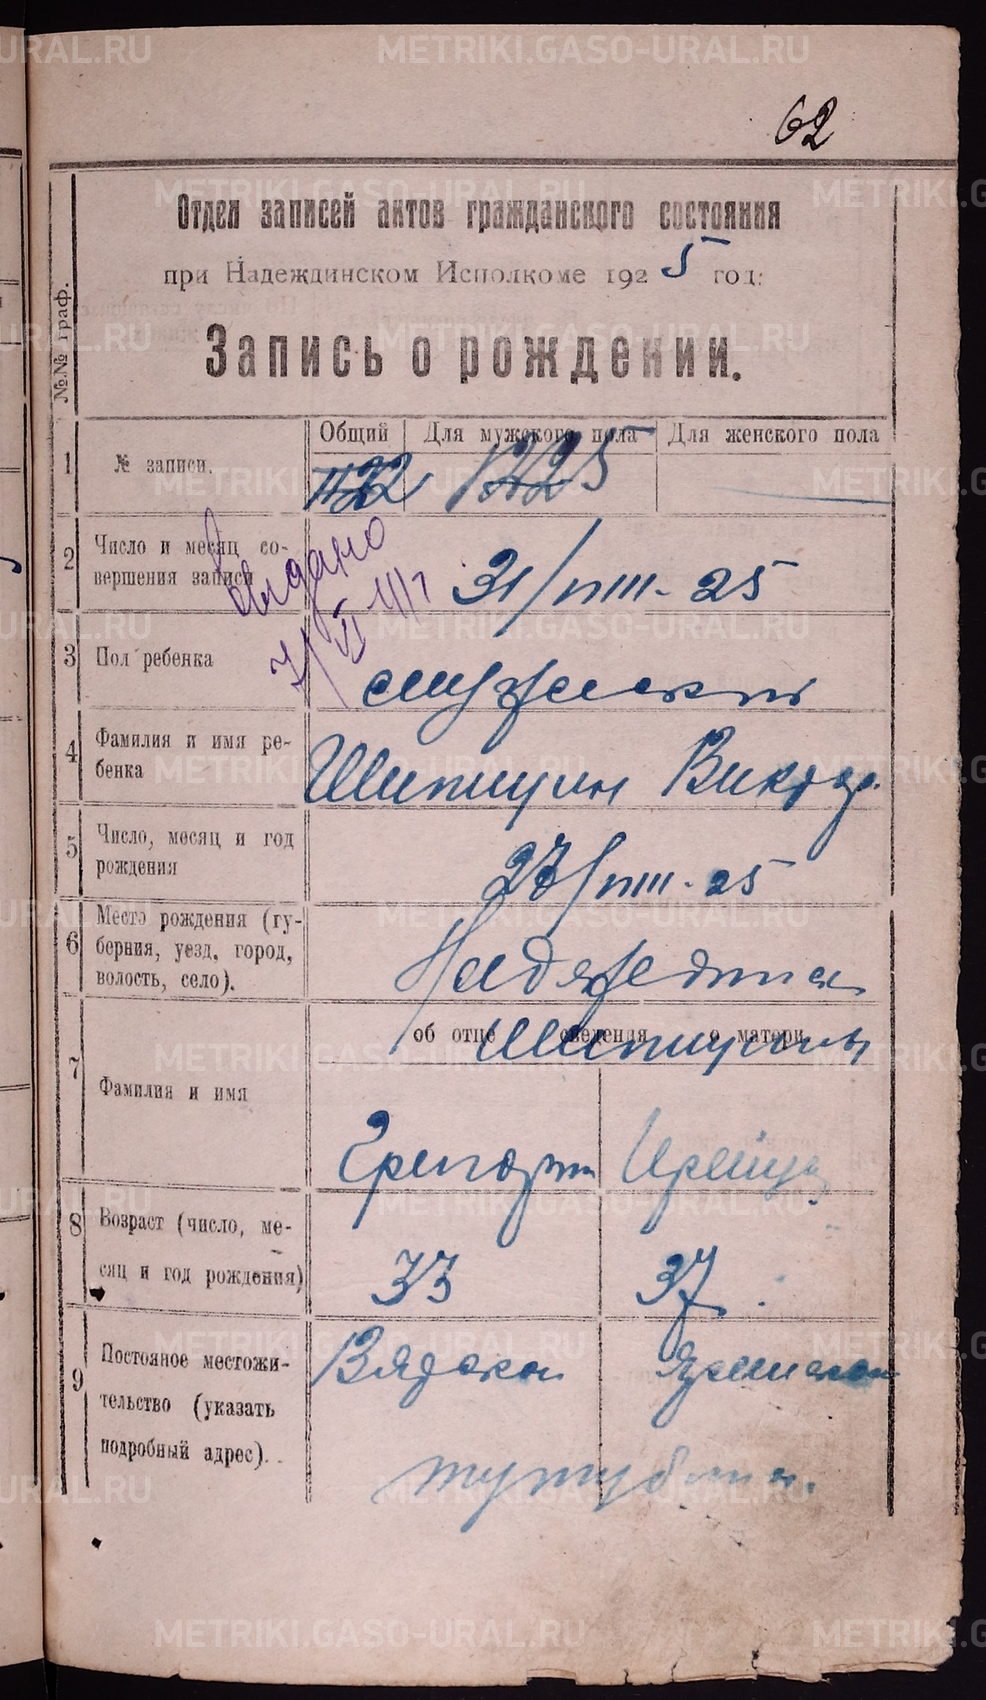 62
Отдел записей актов гражданского состояния
при Надеждинском Исполкоме 1925 год:
Запись о рождении.
№№ граф.
Общий Для мужского пола Для женского пола
1 № записи.
2 Число и месяц со-
вершения записи
31/VIII-25
Выдано
3 Пол ребенка
мужской
4 Фамилия и имя ре-
бенка
Шипицин Виктор.
5 Число, месяц и год
рождения
27/VIII-25
6 Место рождения (гу-
берния, уезд, город,
волость, село).
об отце сведения о матери
Шипицины
7 Фамилия и имя
Григорий
8 Возраст (число, ме-
сяц и год рождения)
33 37.
9 Постояное местожи-
тельство (указать
подробный адрес).
METRIKI.GASO-URAL.RU